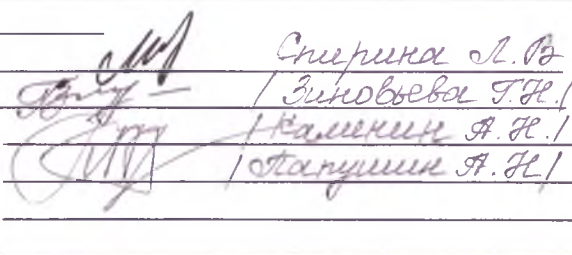 Спирина Л.В
/ Зиновьева Г.Н./
/ Каминин А.Н./
/ Папушин А.Н/